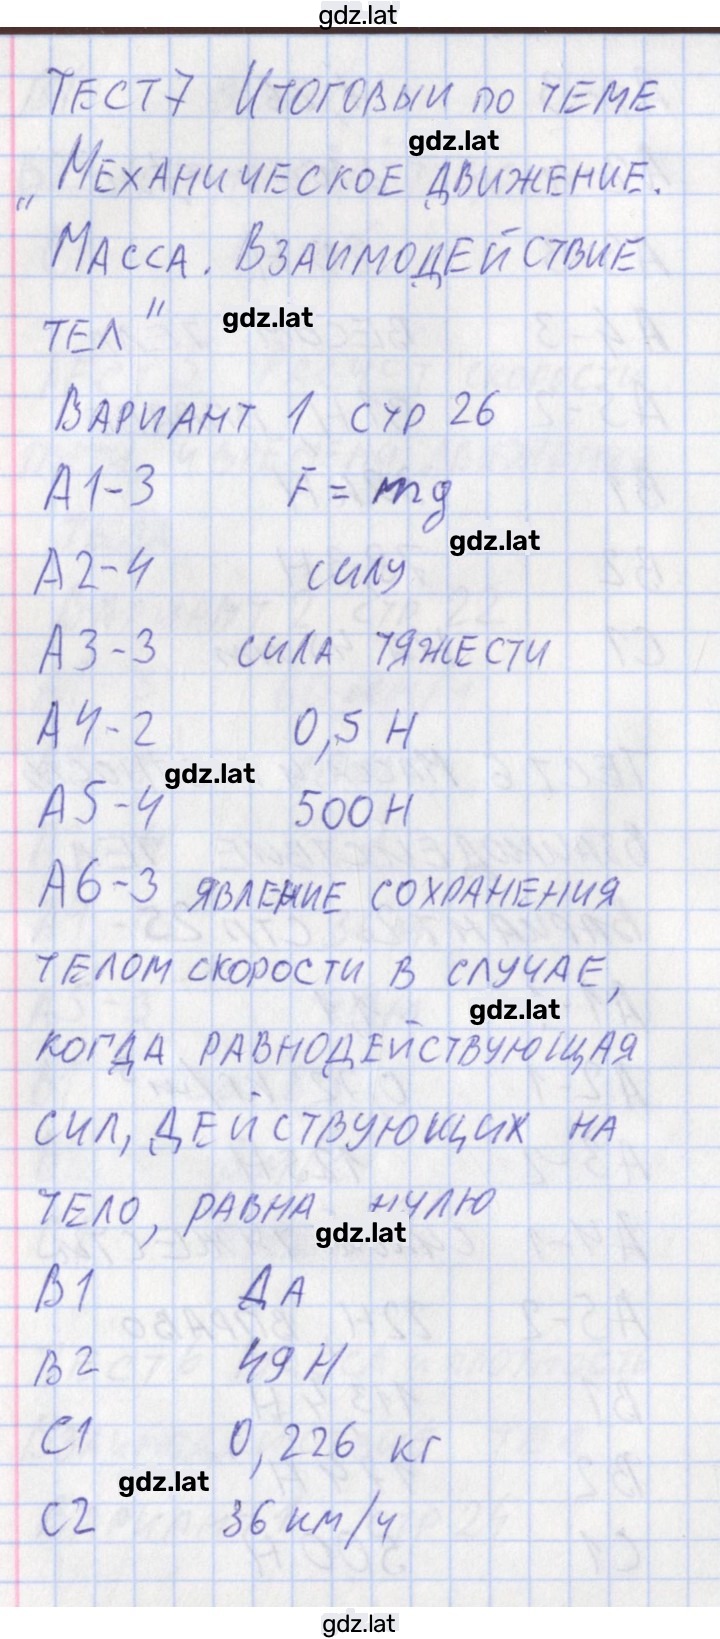 gdz.lat
ТЕСТ 7 ИТОГОВЫЙ ПО ТЕМЕ
gdz.lat
"МЕХАНИЧЕСКОЕ ДВИЖЕНИЕ.
МАССА. ВЗАИМОДЕЙСТВИЕ
ТЕЛ"
gdz.lat
ВАРИАНТ 1 СТР 26
А1-3 F = mg
gdz.lat
А2-4 СИЛУ
А3-3 СИЛА ТЯЖЕСТИ
А4-2 0,5 Н
gdz.lat
А5-4 500 Н
А6-3 ЯВЛЕНИЕ СОХРАНЕНИЯ
ТЕЛОМ СКОРОСТИ В СЛУЧАЕ,
gdz.lat
КОГДА РАВНОДЕЙСТВУЮЩАЯ
СИЛ, ДЕЙСТВУЮЩИХ НА
ТЕЛО, РАВНА НУЛЮ
gdz.lat
В1 ДА
В2 49 Н
С1 0,226 кг
gdz.lat
С2 36 км/ч
gdz.lat